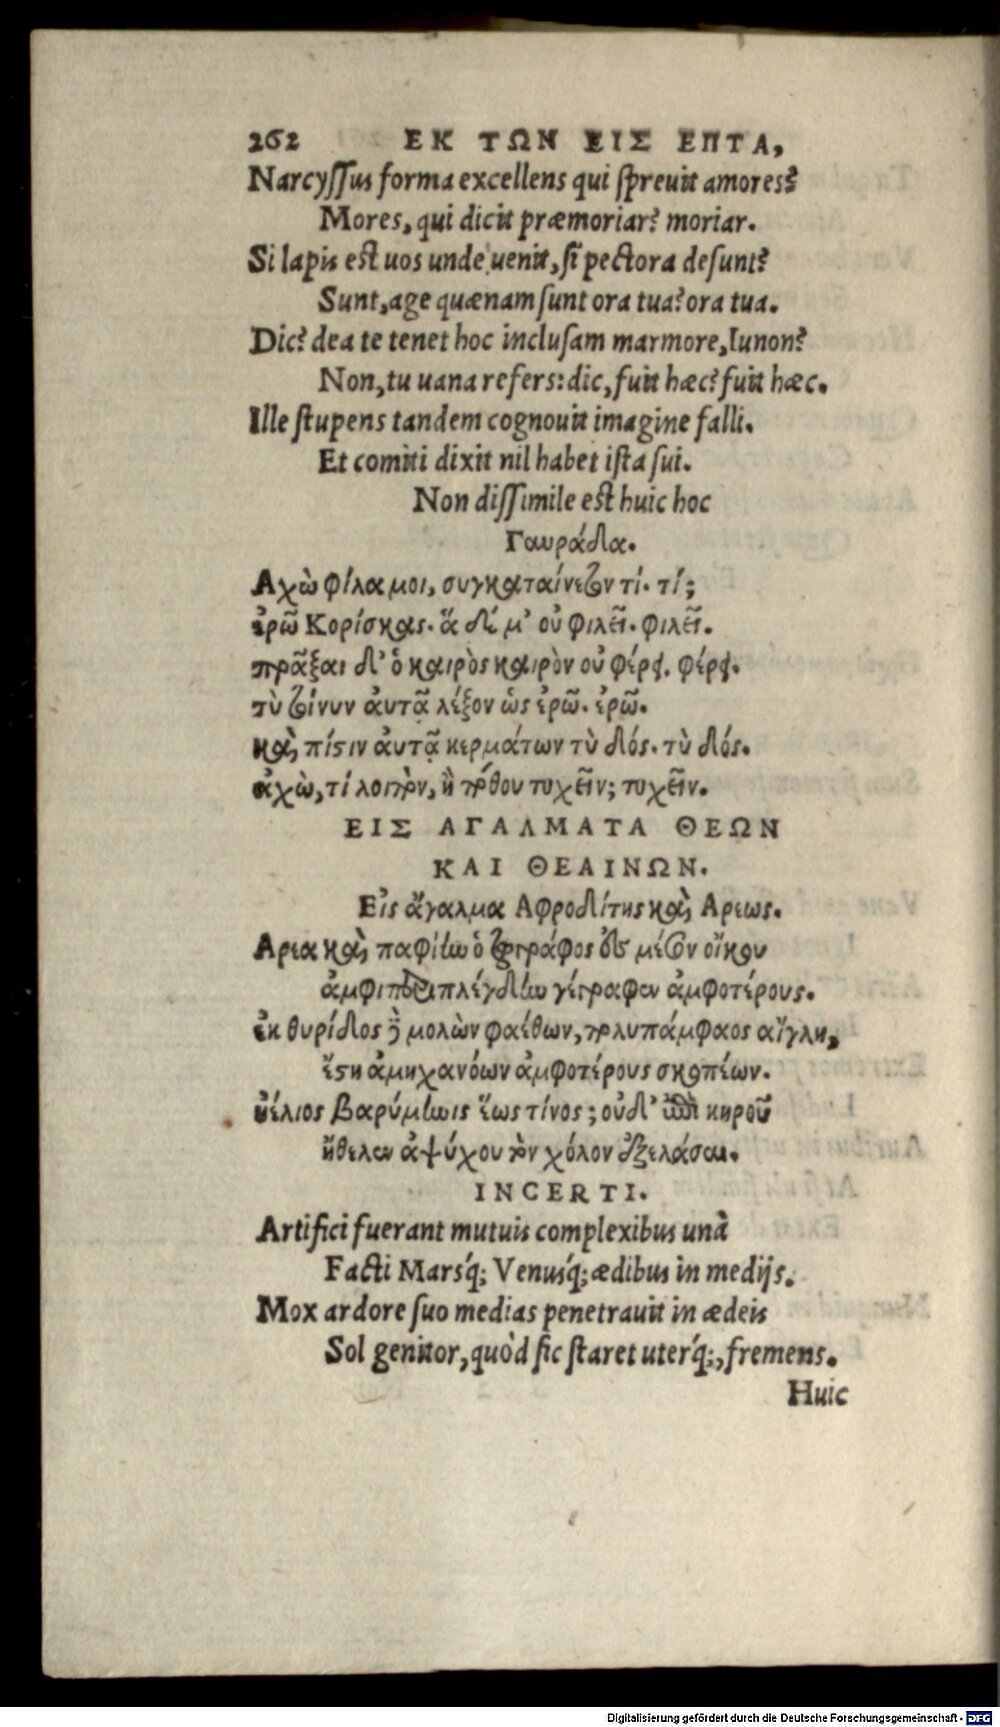 262 ΕΚ ΤΩΝ ΕΙΣ ΕΠΤΑ,
Narcyſſus forma excellens qui ſpreuit amores?
Mores, qui dicit præmoriar? moriar.
Si lapis eſt uos unde uenit, ſi pectora deſunt?
Sunt, age quænam ſunt ora tua? ora tua.
Dic? dea te tenet hoc incluſam marmore, Iunon?
Non, tu uana refers: dic, fuit hæc? fuit hæc.
Ille ſtupens tandem cognouit imagine falli.
Et comiti dixit nil habet iſta ſui.
Non diſſimile eſt huic hoc
Γαυράδα.
Αχὼ φίλα μοι, συγκαταίνεσόν τί. τί;
ἐρῶ Κορίσκας. ἅ δέ μ' οὐ φιλεῖ. φιλεῖ.
πρᾶξαι δ' ὁ καιρὸς καιρὸν οὐ φέρει. φέρει.
τὺ τοίνυν ἀυτᾷ λέξον ὡς ἐρῶ. ἐρῶ.
καὶ πίστιν ἀυτᾷ κερμάτων τὺ δός. τὺ δός.
ἀχὼ, τί λοιπὸν, ἢ πόθου τυχεῖν; τυχεῖν.
ΕΙΣ ΑΓΑΛΜΑΤΑ ΘΕΩΝ
ΚΑΙ ΘΕΑΙΝΩΝ.
Εἰς ἄγαλμα Αφροδίτης καὶ Αρεως.
Αρεα καὶ παφίην ὁ ζωγράφος ἐς μέσον οἴκου
ἀμφιπεριπλέγδην γέγραφεν ἀμφοτέρους.
ἐκ θυρίδος δὲ μολὼν φαέθων, πολυπάμφαος αἴγλη,
ἔστη ἀμηχανόων ἀμφοτέρους σκοπέων.
ἠέλιος βαρύμηνις ἕως τίνος; οὐδ' ἐπὶ κηροῦ
ἤθελεν ἀψύχου τὸν χόλον ἐξελάσαι.
INCERTI.
Artifici fuerant mutuis complexibus unà
Facti Marsq́; Venusq́; ædibus in medijs.
Mox ardore ſuo medias penetrauit in ædeis
Sol genitor, quòd ſic ſtaret uterq́;, fremens.
Huic
Digitalisierung gefördert durch die Deutsche Forschungsgemeinschaft - DFG